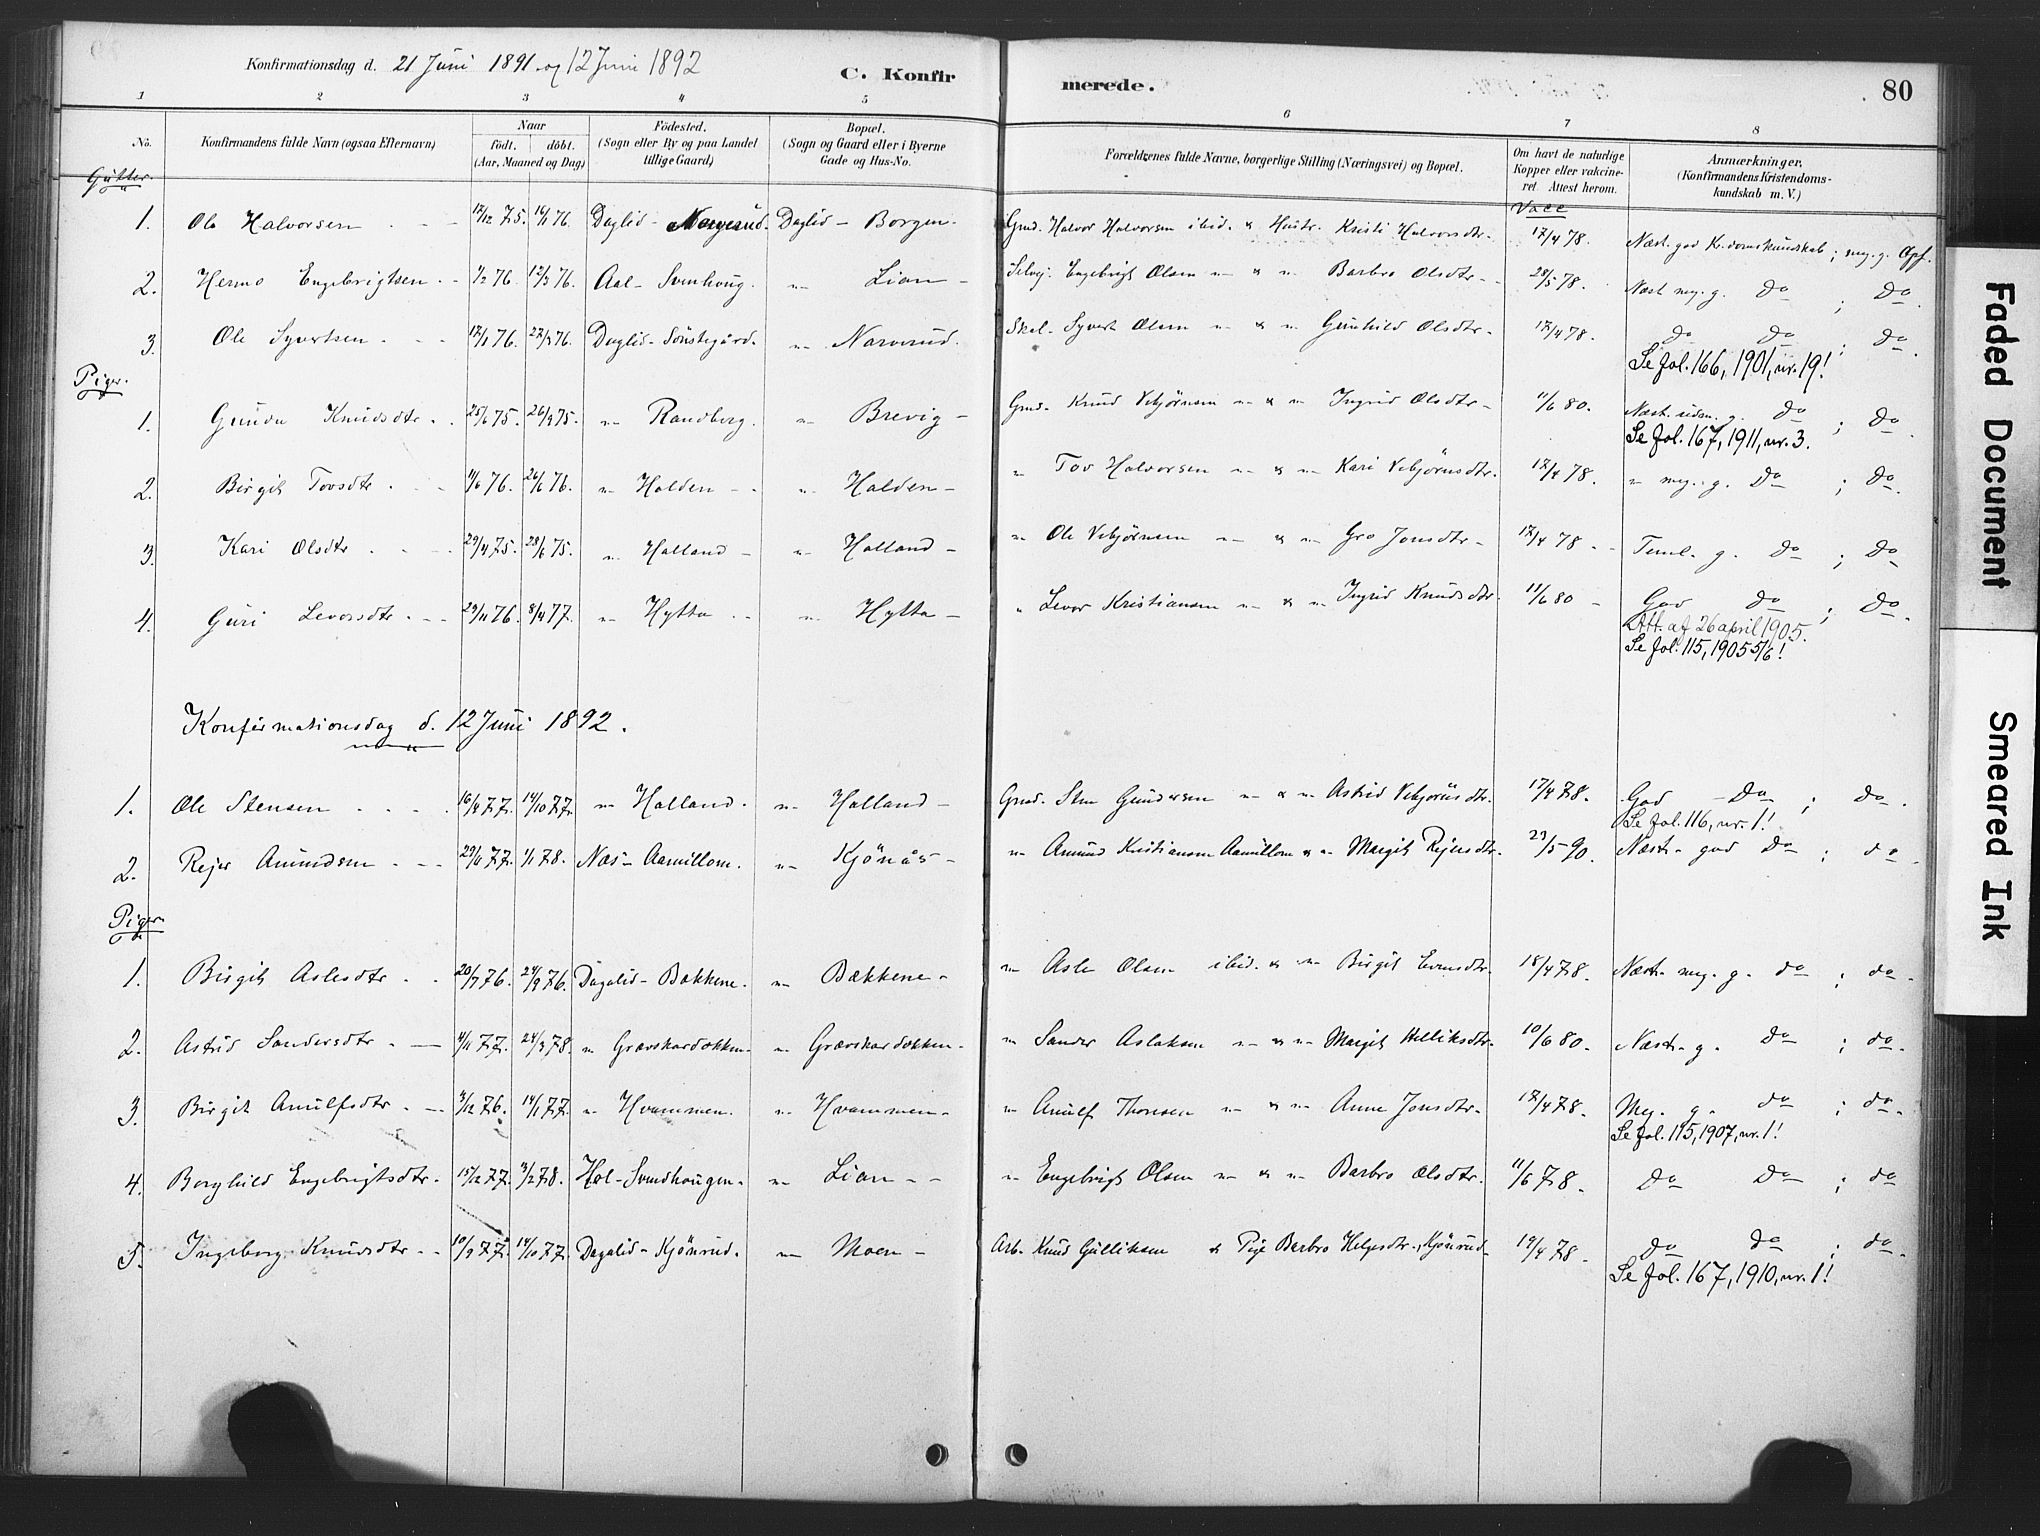 Konfirmationsdag d. 21 Juni 1891 og 12 Juni 1892 C. Konfirmerede. 80
1 2 3 4 5 6 7 8
No. Konfirmandens fulde Navn (ogsaa Efternavn) Naar født. døbt. (Aar, Maaned og Dag) Fødested. (Sogn eller By og paa Landet tillige Gaard) Bopæl. (Sogn og Gaard eller i Byerne Gade og Hus-No. Forældrenes fulde Navne, borgerlige Stilling (Næringsvei) og Bopæl. Om havt de naturlige Kopper eller vakcineret. Attest herom. Anmærkninger. (Konfirmandens Kristendomskundskab m. V.)
Gutter. Vacc
1. Ole Halvorsen 12/12 75. 16/1 76. Daglid - Daglid - Borgen. Gmd. Halvor Halvorsen ibid. & Hustr. Kristi Halvorsdtr. 17/4 78. Næst. god Kr.domskundskab; meg. g. Opf.
2. Herme Engebrigtsen 1/2 76. 12/3 76. Aal - Svenhoug. " Lian - Selvej. Engebrigt Olsen " & " Barbro Olsdtr - 28/5 78. Næst meg. g. Do ; Do.
3. Ole Syvertsen 17/1 76. 27/3 76. Daglid - Sönstegård. " Narverud. Skol - Syvert Olsen " & " Gunhild Olsdtr - 17/4 78. Do Do ; Do.
Se fol. 166, 1901, nr. 19!
Piger.
1. Gunda Knudsdtr. 25/6 75. 26/9 75. " Randberg. " Brevig - Gmd. Knud Vebjörnsen " & " Ingrid Olsdtr - 11/6 80. Næst. udm. g. Do ; Do.
Se fol. 167, 1911, nr. 3.
2. Birgit Tovsdtr. 11/6 76. 26/6 76. " Holden - " Halden - " Tov Halvorsen " & " Kari Vebjörnsdtr. 17/4 78. " meg. g. Do ; Do.
3. Kari Olsdtr. 29/4 75. 28/6 75. " Halland - " Halland - " Ole Vebjörnsen " & " Gro Jonsdtr - 17/4 78 - Teml. g. Do ; Do
4. Guri Levorsdtr. 29/11 76. 8/4 77. " Hytta " Hytta - " Levor Kristiansen " & " Ingrid Knudsdtr. 11/6 80 - God Do ; Do.
Att. af 26 april 1905.
Se fol. 115, 1905 5/6!
Konfirmationsdag d. 12 Juni 1892.
1. Ole Stensen 16/8 77. 14/10 77. " Halland. " Halland - Gmd. Sten Gundersen " & " Astrid Vebjörnsdtr. 17/4 78. God - Do ; Do.
Se fol. 116, nr. 1!
2. Rejer Amundsen 29/11 77. 1/1 78. Næs - Aamillom. " Kjönås - " Amund Kristiansen Aamillom & " Margit Rejersdtr. 23/5 90. Næst. god Do ; do.
Piger.
1. Birgit Aslesdtr 20/7 76. 24/9 76. Dagalid - Bakkene. " Bækkene - " Asle Olsen ibid. & " Birgit Evensdtr. 18/4 78. Næst. meg. g. do ; do.
2. Astrid Sandersdtr. 4/11 77. 24/3 78. " Grævskardokken. " Grævskardokken. " Sander Aslaksen " & " Margit Helliksdtr. 10/6 80. Næst. g. Do ; do.
3. Birgit Arnulfsdtr. 3/12 76. 14/1 77. " Hvammen. " Hvammen. " Arnulf Thoresen " & " Anne Jonsdtr. 17/4 78. Meg. g. do ; do.
Se fol. 115, 1907, nr. 1!
4. Borghild Engebrigtsdtr. 15/12 77. 3/2 78. Hol - Svendhougen. " Lian - " Engebrigt Olsen " & " Barbro Olsdtr. 11/6 78. Do Do ; do
5. Ingeborg Knudsdtr 10/9 77. 14/10 77. Dagalid - Kjönrud. " Moen - Arb. Knud Gulliksen & Pige Barbro Helgesdtr., Kjönrud - 19/4 78. Do Do ; do.
Se fol. 167, 1910, nr. 1!
Faded Document
Smeared Ink